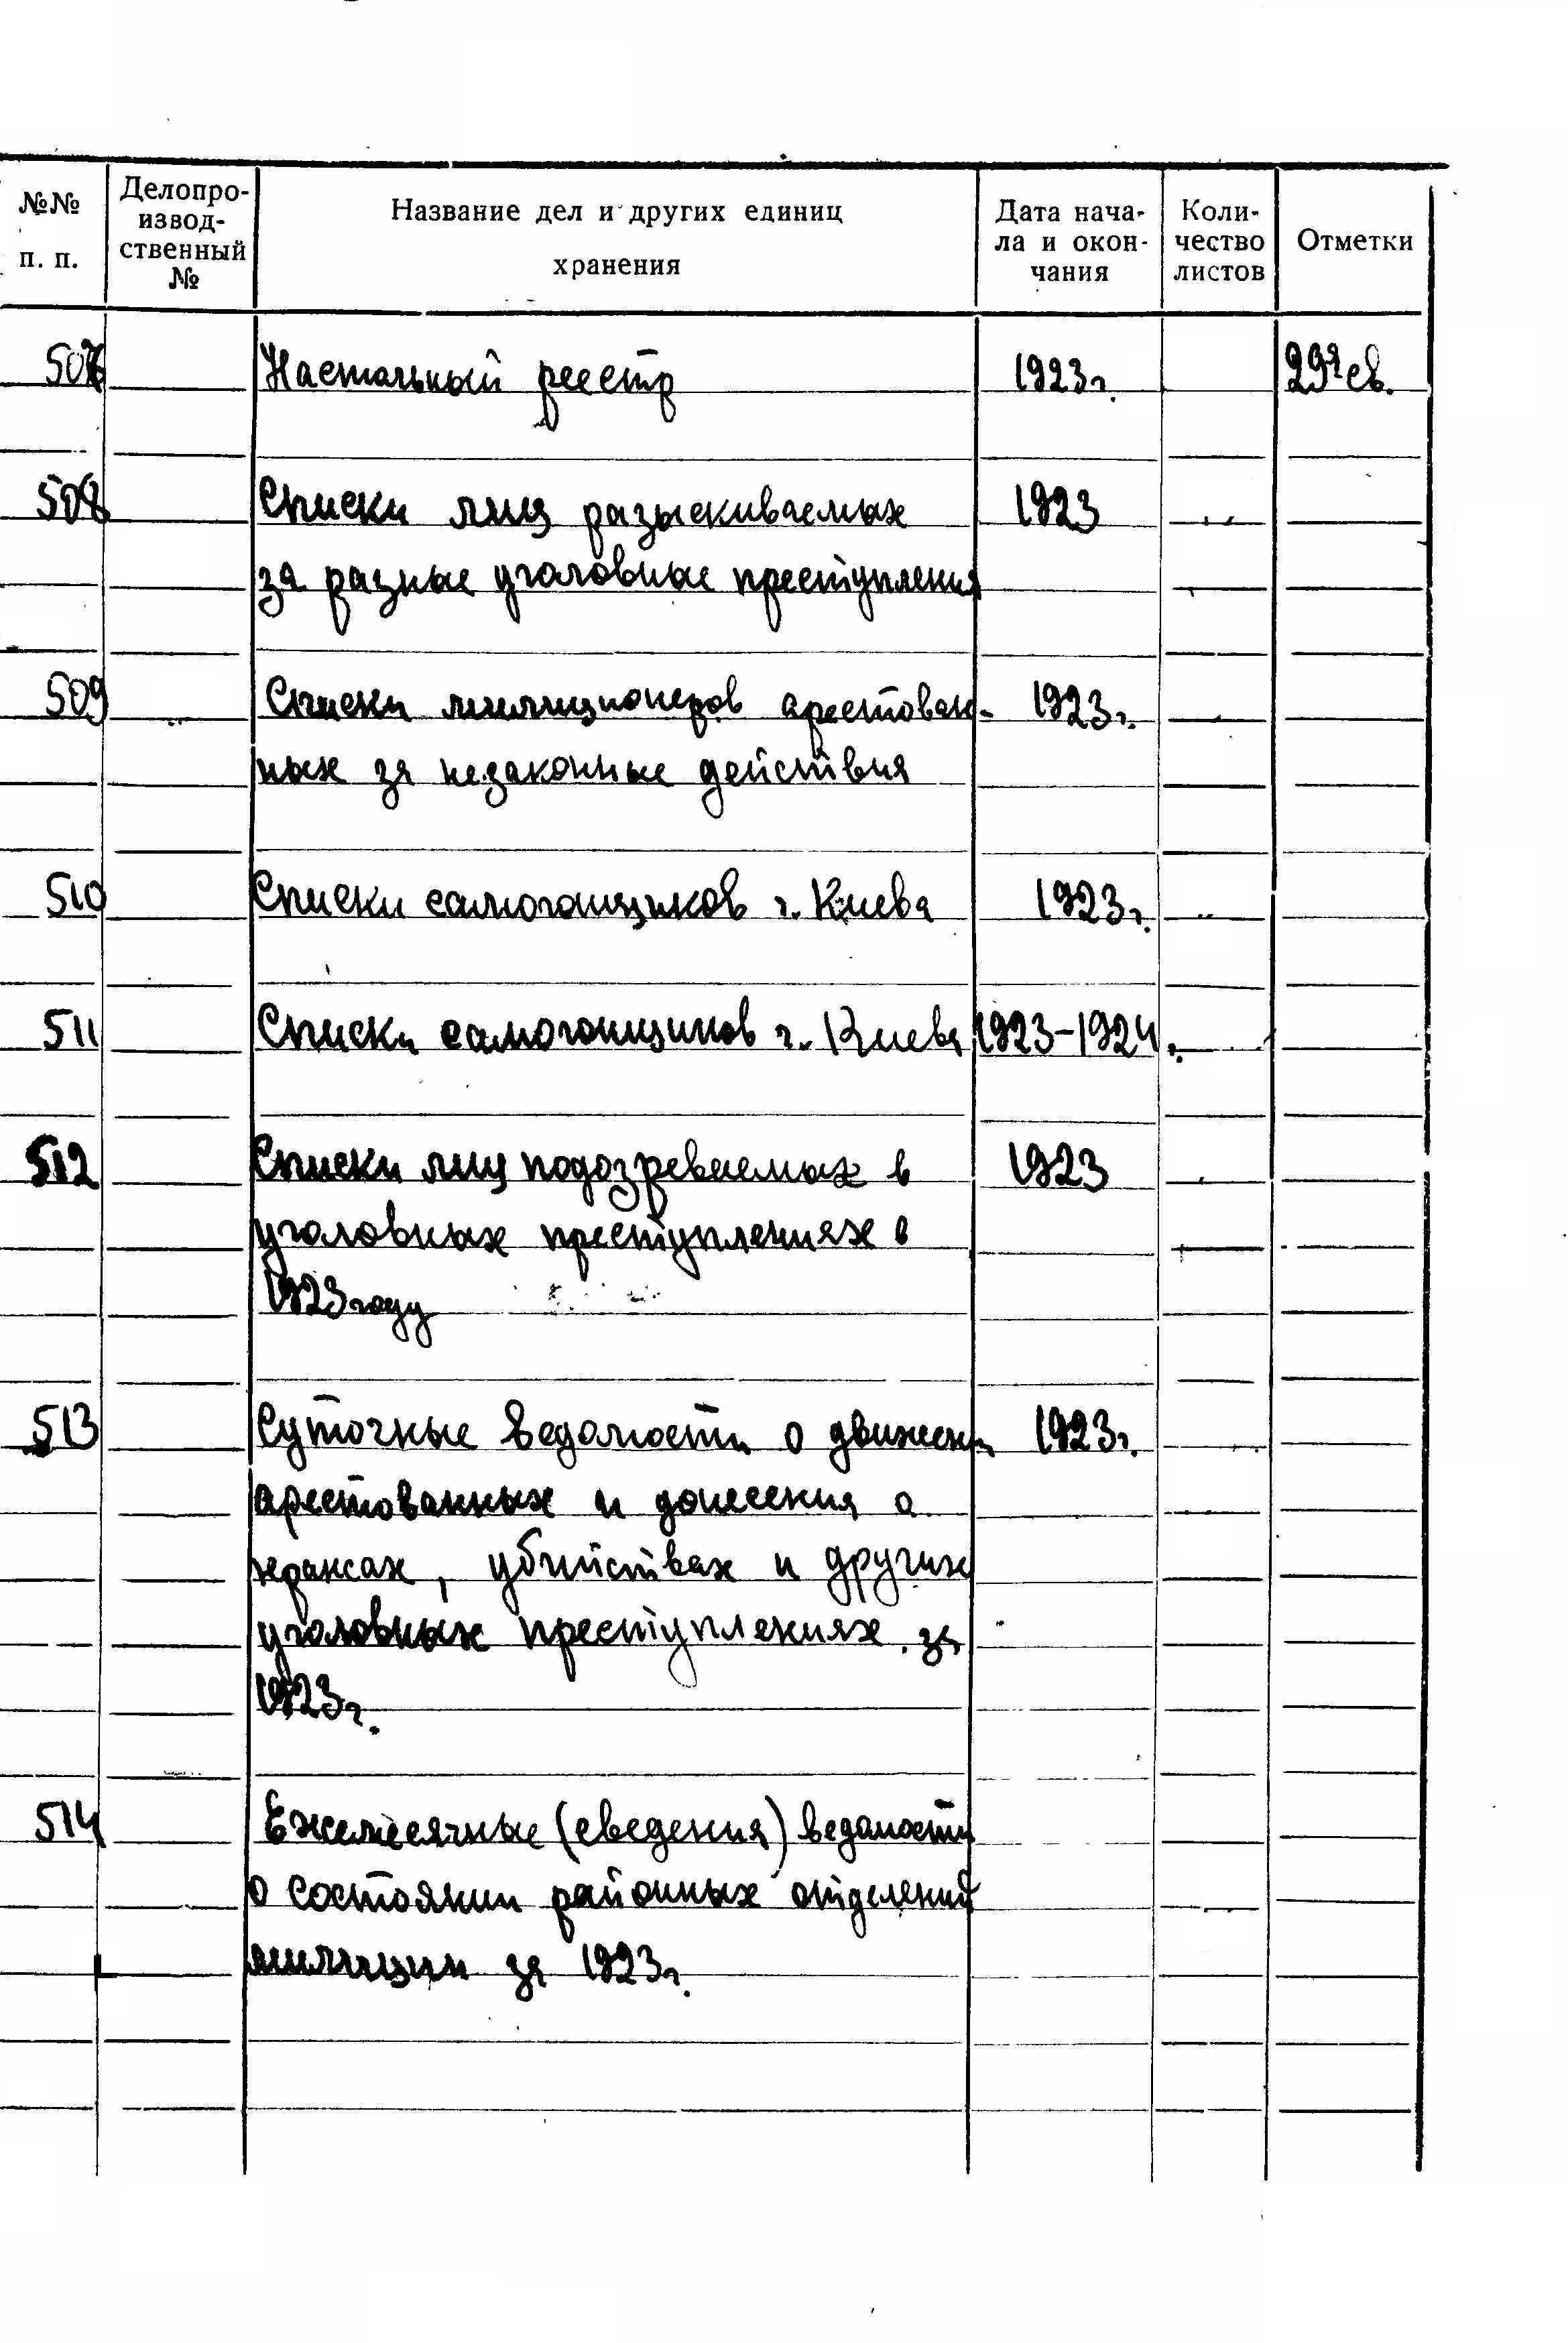 №№ п. п. Делопро- извод- ственный № Название дел и других единиц хранения Дата нача- ла и окон- чания Коли- чество листов Отметки
507 Настольный реестр 1923г.
508 Списки лиц разыскиваемых 1923
за разные уголовные преступления
509 Списки милиционеров арестован- 1923г.
ных за незаконные действия
510 Списки самогонщиков г. Киева 1923г.
511 Списки самогонщиков г. Киева 1923-1924г.
512 Списки лиц подозреваемых в 1923
уголовных преступлениях в
1923 году
513 Суточные ведомости о движении 1923г.
арестованных и донесения о
кражах, убийствах и других
уголовных преступлениях за
1923г.
514 Ежемесячные (сведения) ведомости
о состоянии районных отделений
милиции за 1923г.